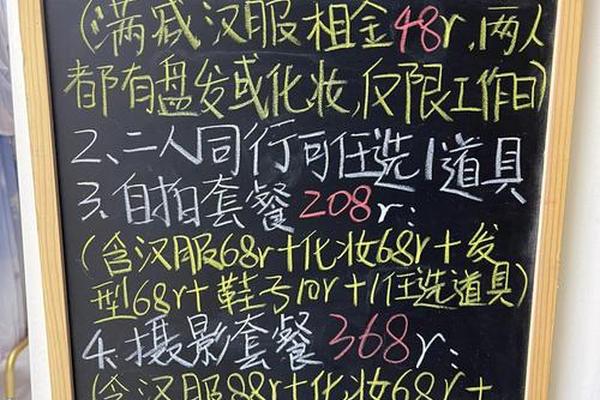 (满减汉服租金48r,两人
都有盘发或化妆,仅限工作日)
2、二人同行可任选1道具
3、自拍套餐208r:
(含汉服68r+化妆68r+发
型68r+鞋子10r+1任选道具)
4、摄影套餐368r:
(含汉服88r+化妆68r+